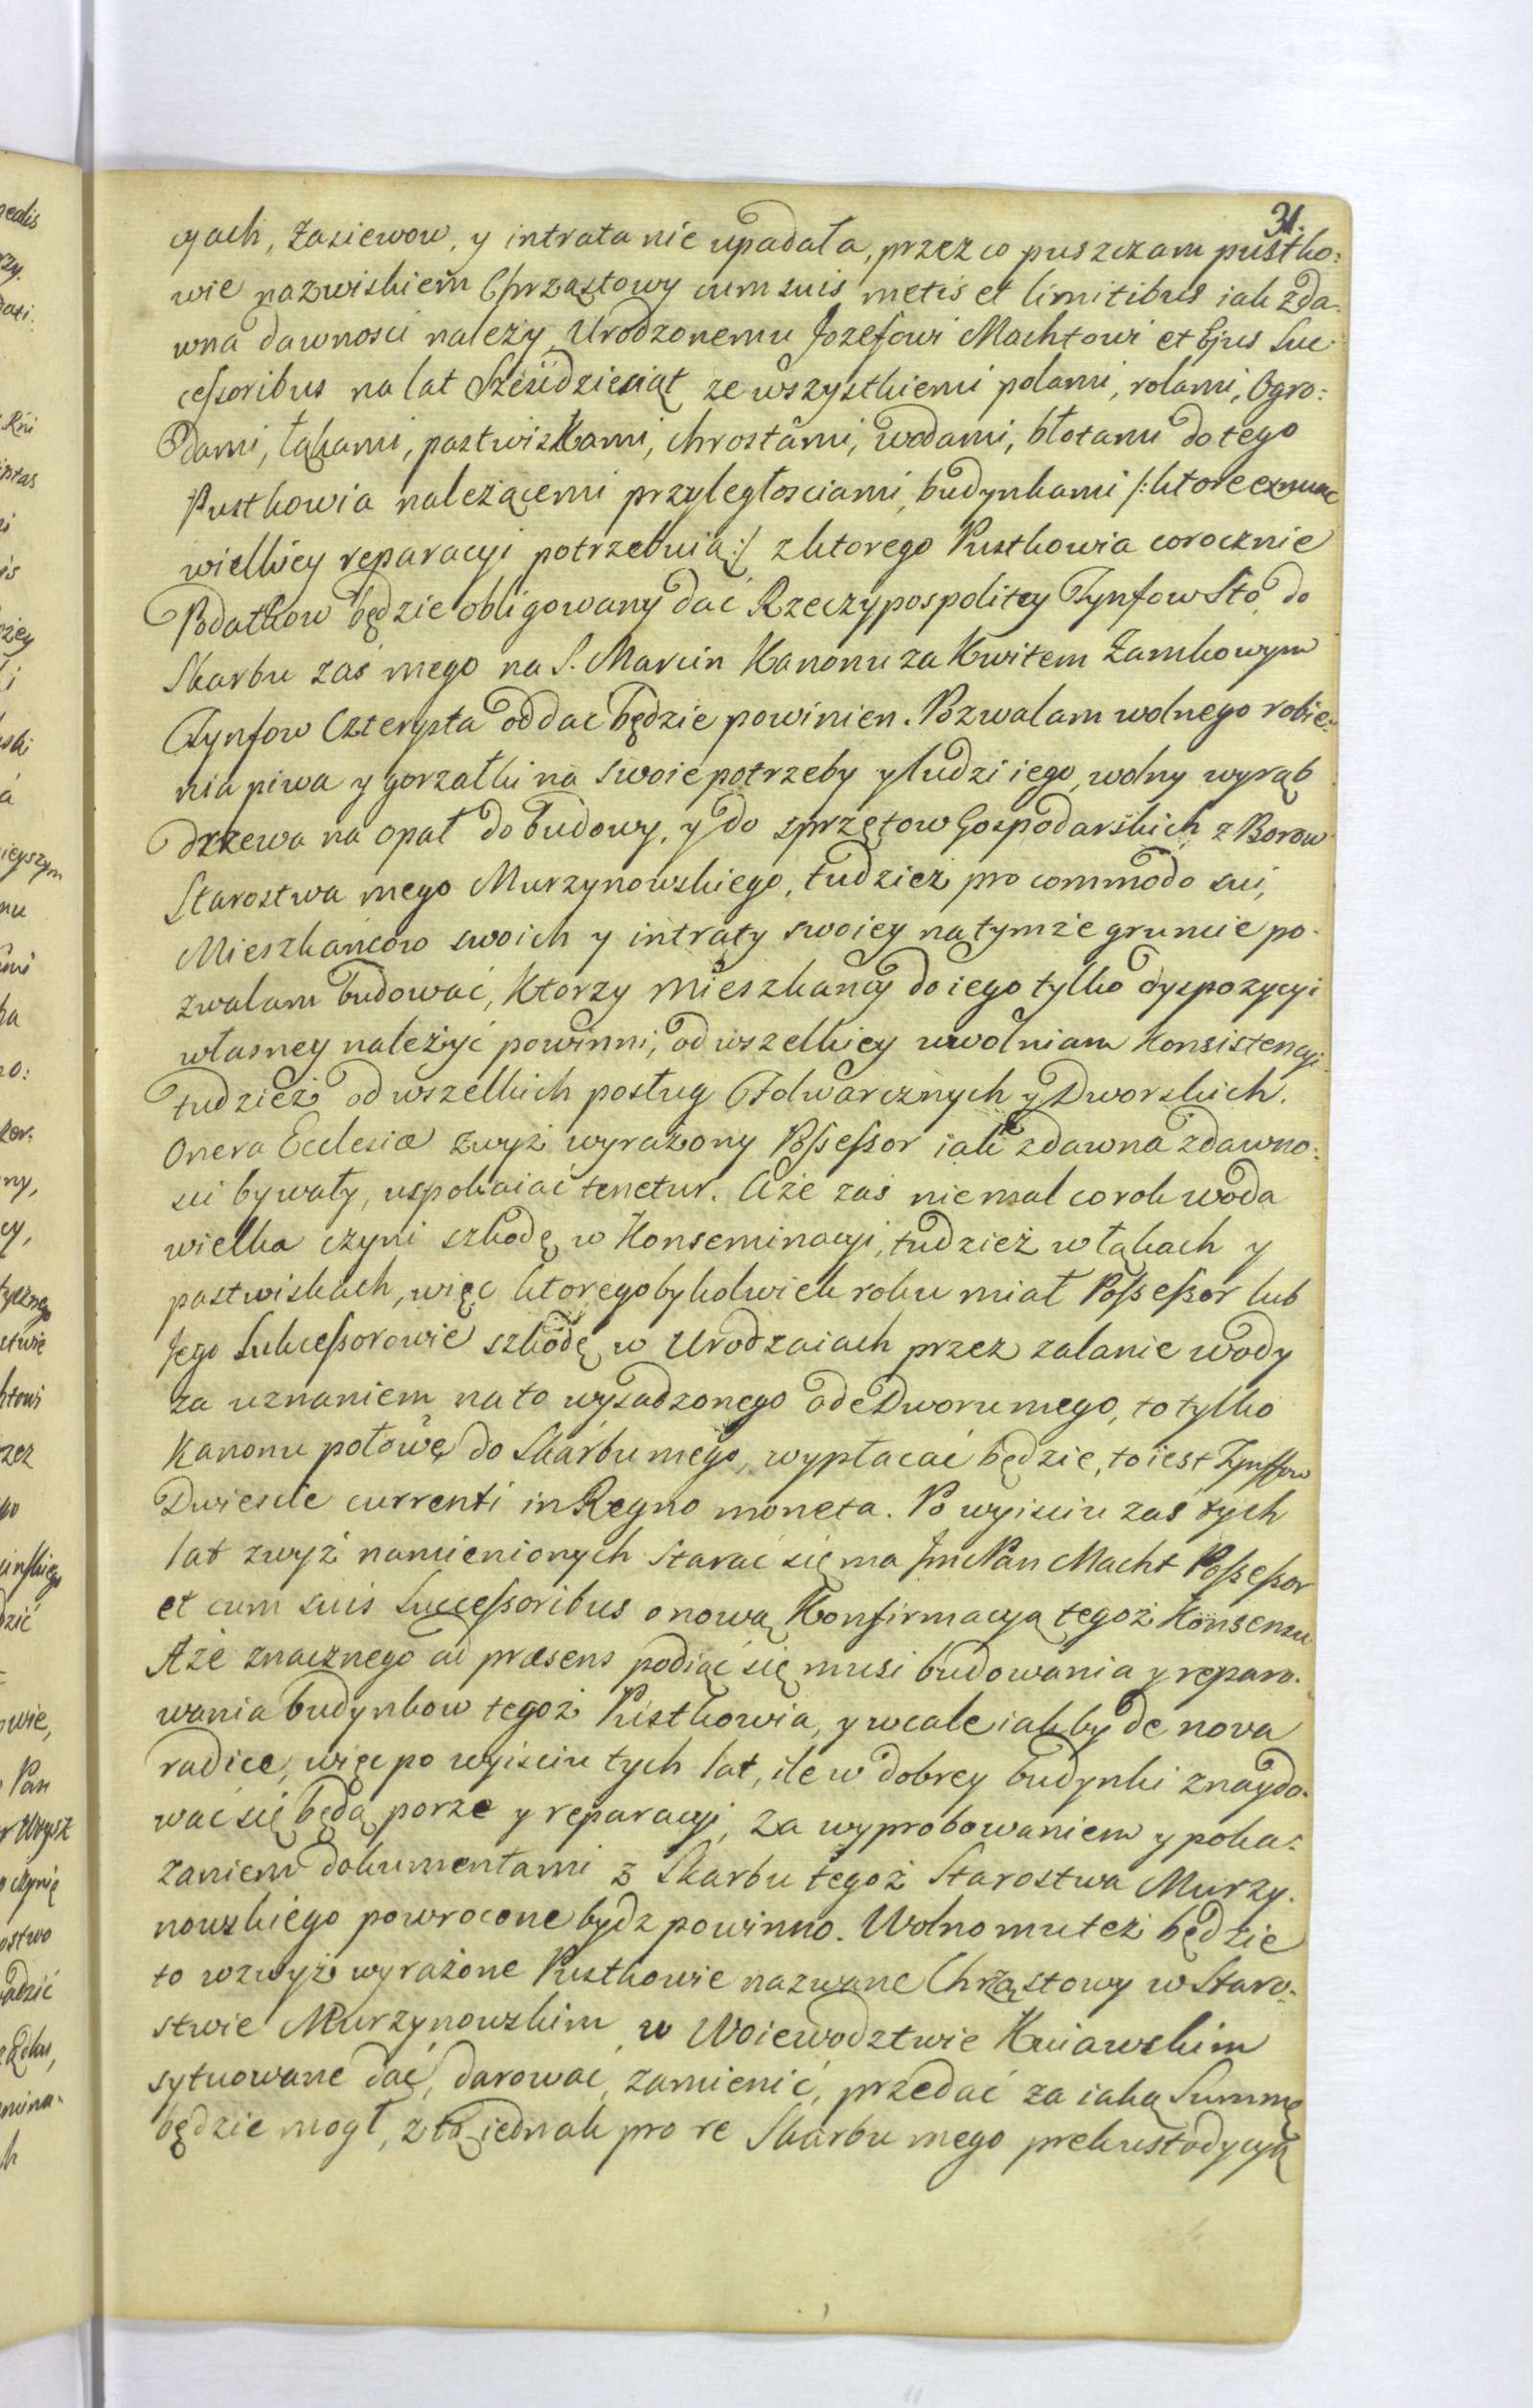 31.
cyach, zasiewow, y intrata nie upadała, przez co puszczam pustko:
wie nazwiskiem Chrząstowy cum suis metis et limitibus iak zda-
wna dawnosci należy Urodzonemu Jozefowi Machtowi et Ejus Suc-
cessoribus na lat Szescdziesiąt ze wszystkiemi polami, rolami, Ogro:
dami, łąkami, pastwiskami, chrostami, wodami, błotami do tego
Pustkowia należącemi przyległosciami, budynkami /:ktore
wielkiey reparacyi potrzebuią:/ z ktorego Pustkowia corocznie
Podatkow będzie obligowany dać Rzeczypospolitey Tynfow Sto, do
Skarbu zaś mego na S. Marcin Kanonu za Kwitem Zamkowym
Tynfow Czterysta oddac będzie powinien. Pozwalam wolnego robie-
nia piwa y gorzałki na swoie potrzeby y ludzi iego, wolny wyrąb
drzewa na opał do budowy, y do sprzętow Gospodarskich z Borow
Starostwa mego Murzynowskiego, tudzież pro commodo sui,
Mieszkancow swoich y intraty swoiey na tymże gruncie po-
zwalam budować, Ktorzy Mieszkancy do iego tylko dyspozycyi
własney należyć powinni, od wszelkiey uwolniam Konsistencyi
tudzież od wszelkich posług Folwarcznych y Dworskich.
Onera Ecclesiæ zwyż wyrażony Possessor iak zdawna zdawno:
sci bywały, uspokaiać tenetur. Aże zaś niemal co rok woda
wielka czyni szkodę w Konseminacyi, tudzież w łąkach y
pastwiskach, więc ktoregobykolwiek roku miał Possessor lub
Jego Sukcessorowie szkodę w Urodzaiach przez zalanie wody
za uznaniem na to wysadzonego ode Dworu mego, to tylko
Kanonu połowę do Skarbu mego, wypłacać będzie, to iest Tynffow
Dwiescie currenti in Regno moneta. Po wyisciu zaś tych
lat zwyż namienionych starać się ma Jmc Pan Macht Possessor
et cum suis Successoribus o nową Konfirmacyą tegoż Konsensu
Aże znacznego ad præsens podiąć się musi budowania y reparo-
wania budynkow tegoż Pustkowia, y wcale iakby de nova
radice, więc po wyisciu tych lat, ile w dobrey budynki znaydo-
wać się będą porze y reparacyi, za wyprobowaniem y poka:
zaniem dokumentami z Skarbu tegoż Starostwa Murzy-
nowskiego powrocone bydz powinno. Wolno mu też będzie
to wzwyż wyrażone Pustkowie nazwane Chrząstowy w Staro-
stwie Murzynowskim, w Woiewodztwie Kuiawskim
sytuowane dać, darować, zamienić, przedać za iaką Summę
będzie mogł, z tą iednak pro re Skarbu mego prekustodycyą